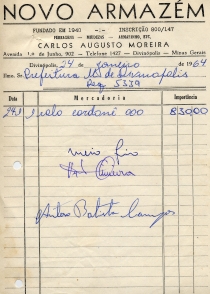 NOVO ARMAZÉM
FUNDADO EM 1940 — INSCRIÇÃO 800/147
FERRAGENS - MIUDEZAS - ARMARINHO, ETC.
CARLOS AUGUSTO MOREIRA
Avenida 1.o de Junho, 902 — Telefone 1427 — Divinópolis — Minas Gerais
Divinópolis, 24 de janeiro de 1964
Ilmo. Sr. Prefeitura M. de Divinópolis
Req 5339
Data Mercadoria Importância
24,1 1 rolo cordoné 000 830,00
meio fio
Antonio Batista Campos